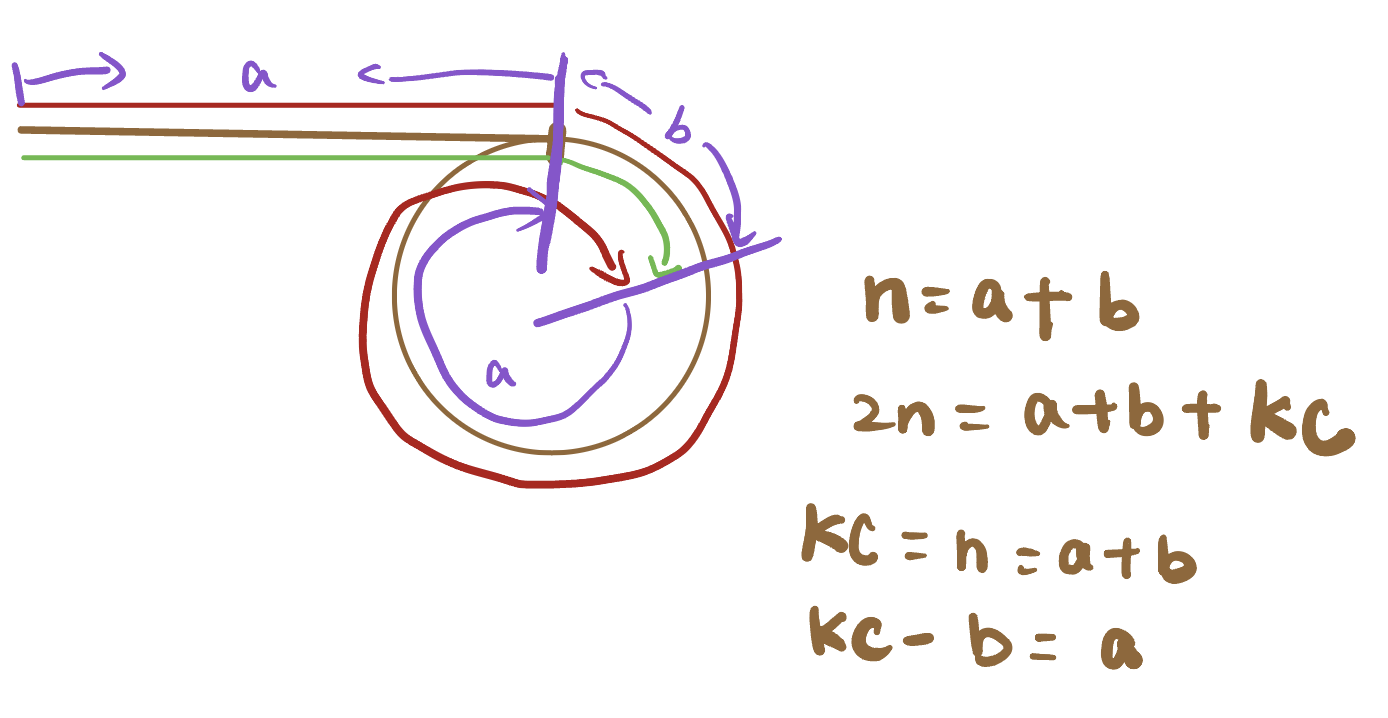 a
b
a
n = a + b
2n = a + b + kc
kc = n = a + b
kc - b = a